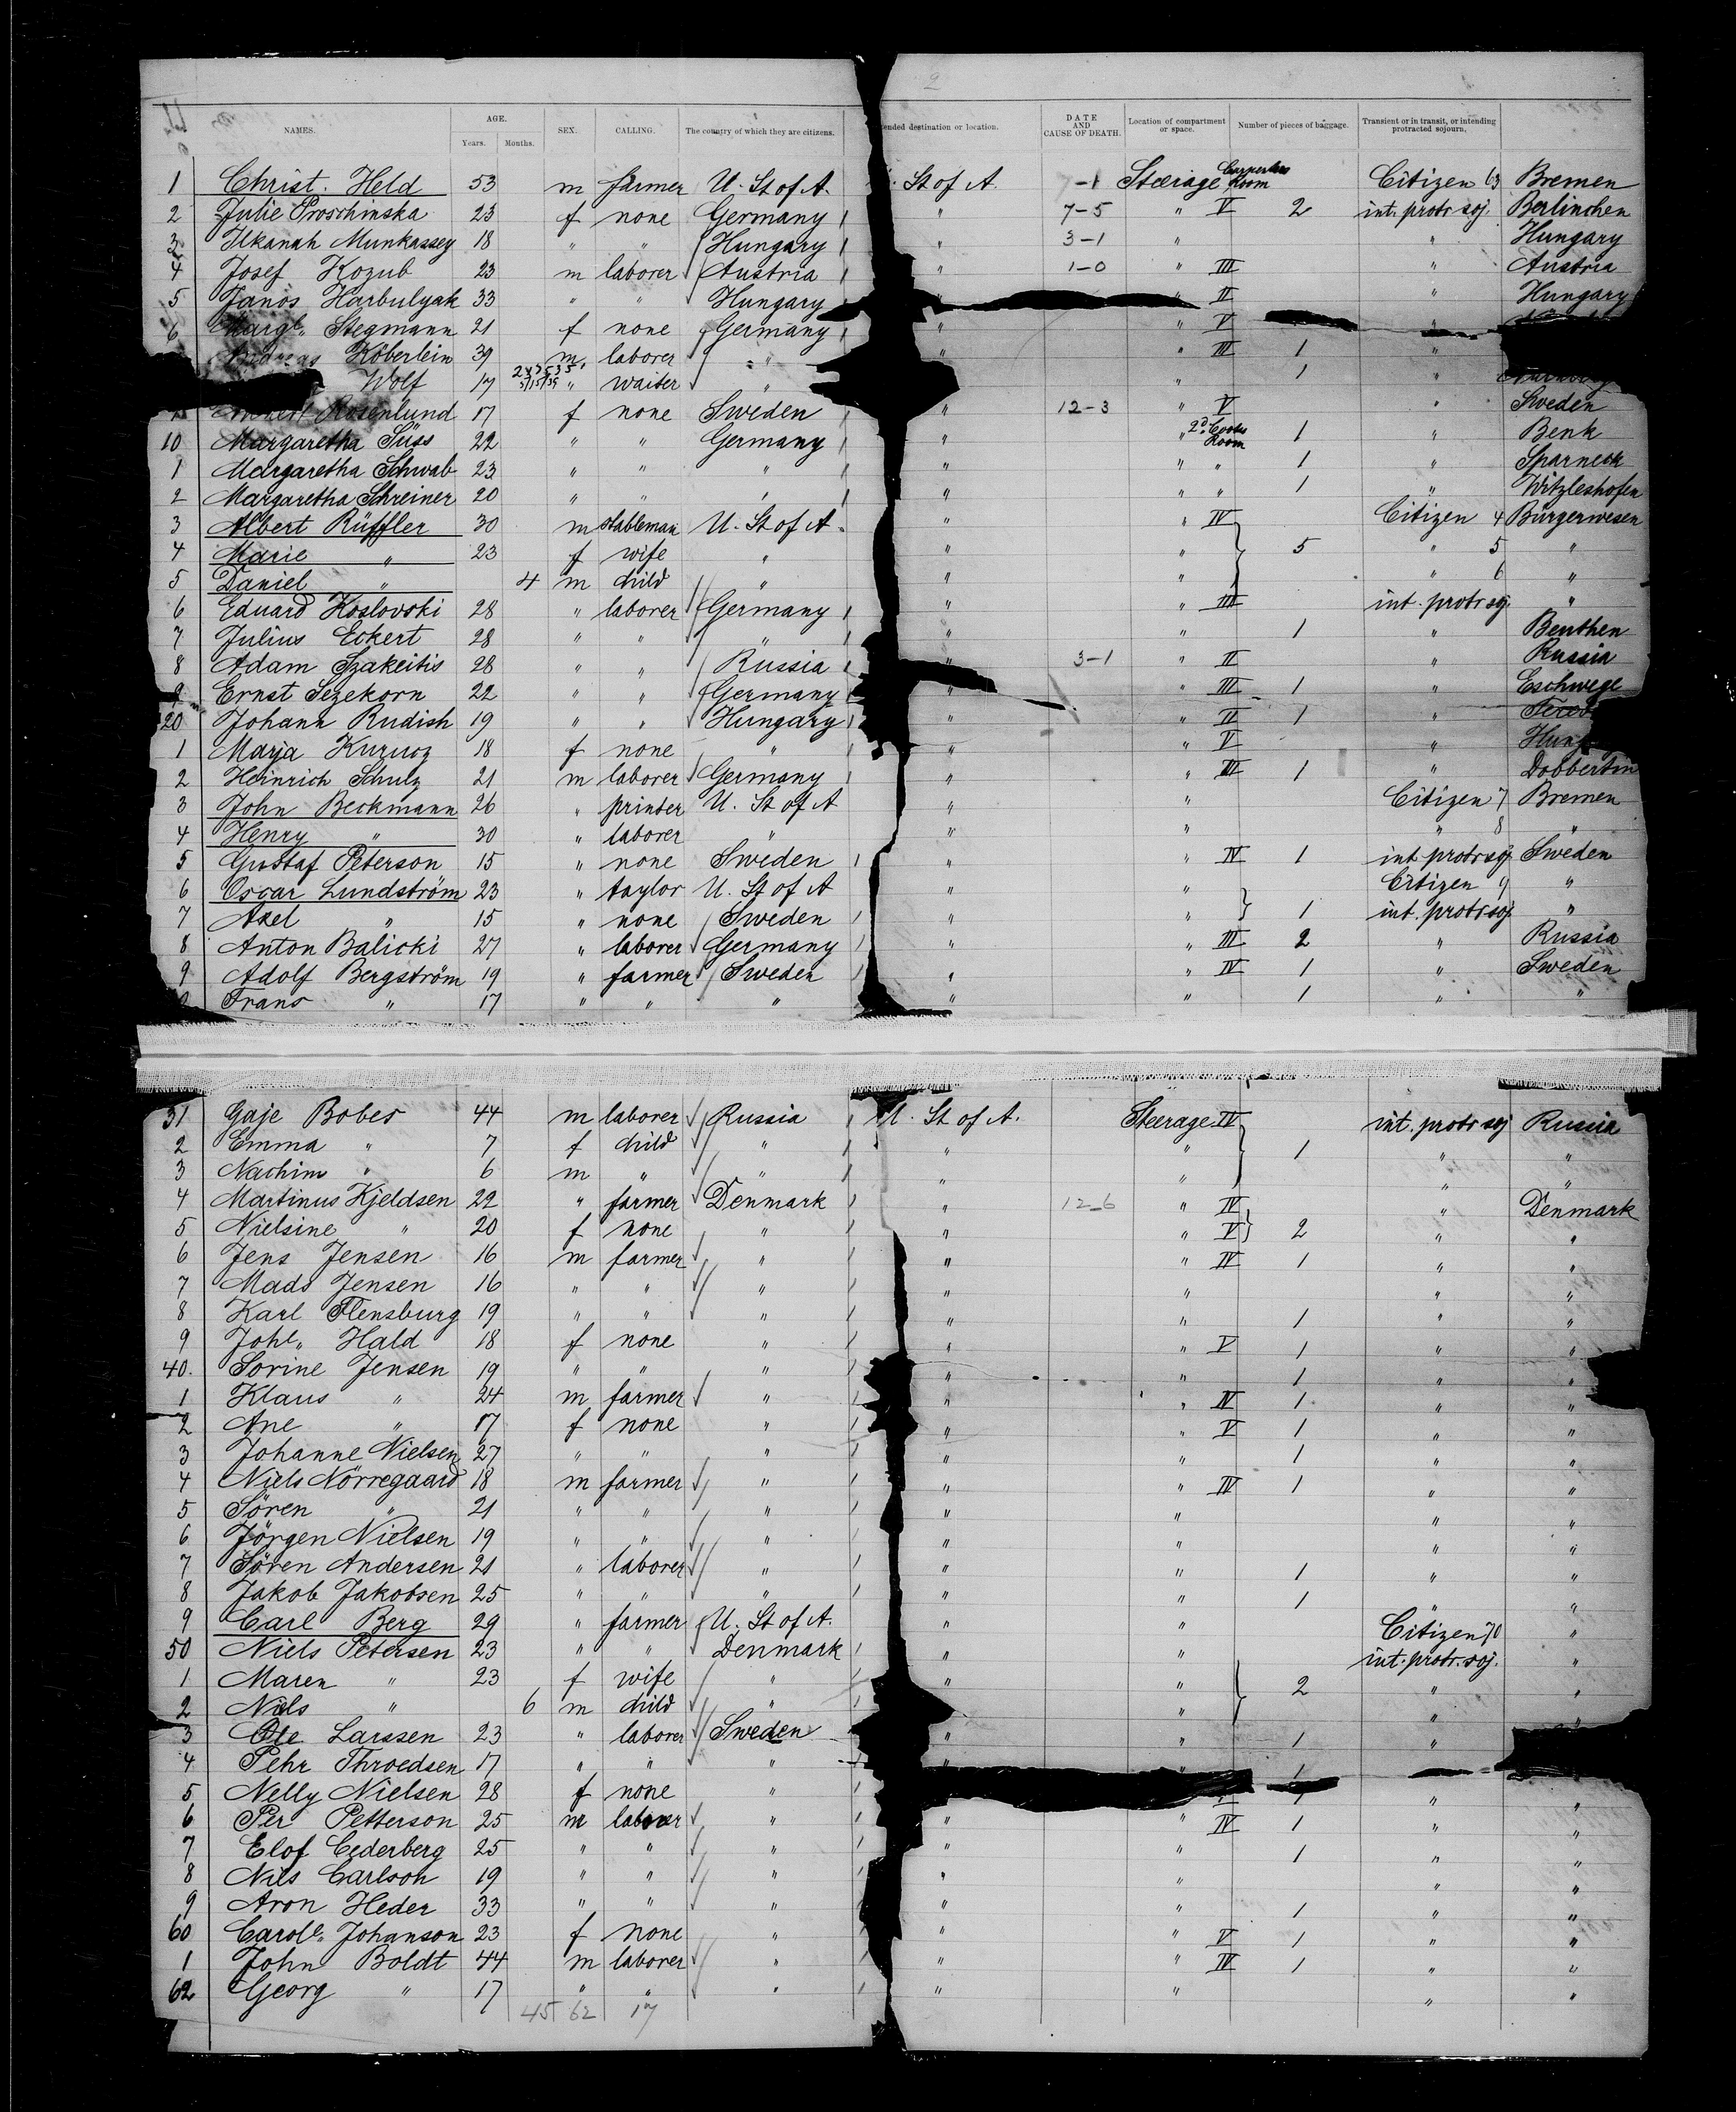 2
NAMES. AGE. Years. Months. SEX. CALLING. The country of which they are citizens. ended destination or location. DATE AND CAUSE OF DEATH. Location of compartment or space. Number of pieces of baggage. Transient or in transit, or intending protracted sojourn.
1 Christ. Held 53 m farmer U. St of A. St of A. -1 Steerage Carpenters Room Citizen 63 Bremen
2 Julie Proschinska 23 f none Germany " 7-5 " V 2 int. protr soj. Berlinchen
3 Ilkanah Munkassey 18 " " Hungary " 3-1 " " Hungary
4 Josef Kozub 23 m laborer Austria " 1-0 " III " Austria
5 Janos Harbulyak 33 " " Hungary " " II " Hungary
6 Margt. Stegmann 21 f none Germany " " V "
Köberlein 39 m. laborer " " " III 1 "
Wolf 17 " waiter " " " 1 "
Rosenlund 17 f none Sweden " 12-3 " V " Sweden
10 Margaretha Süss 22 " " Germany " " 2d Cooks Room 1 " Benk
1 Margaretha Schwab 23 " " " " " " 1 " Sparneck
2 Margaretha Schreiner 20 " " " " " " 1 " Witzleshofen
3 Albert Rüffler 30 m stableman U. St of A. " " IV Citizen 4 Bürgerwesen
4 Marie " 23 f wife " " " 5 " 5 "
5 Daniel " 4 m child " " " " 6 "
6 Eduard Koslovski 28 " laborer Germany " " III int. protr soj. "
7 Julius Eckert 28 " " " " " 1 " Benthen
8 Adam Szakeitis 28 " " Russia " 3-1 " II " Russia
9 Ernst Sezekorn 22 " " Germany " " III 1 " Eschwege
20 Johann Rudish 19 " " Hungary " " II 1 "
1 Marja Kurucz 18 f none " " " V "
2 Heinrich Schulz 21 m laborer Germany " " III 1 " Dobbertin
3 John Beckmann 26 " printer U. St of A " " Citizen 7 Bremen
4 Henry " 30 " laborer " " " " 8 "
5 Gustaf Peterson 15 " none Sweden " " IV 1 int. protr soj Sweden
6 Oscar Lundström 23 " taylor U. St of A " " Citizen 9 "
7 Axel " 15 " none Sweden " " 1 int. protr soj. "
8 Anton Balicki 27 " laborer Germany " " III 2 " Russia
9 Adolf Bergström 19 " farmer Sweden " " IV 1 " Sweden
Frans " 17 " " " " " 1 " "
31 Gaje Bobes 44 m laborer Russia U. St of A. Steerage IV int. protr soj Russia
2 Emma " 7 f child " " " 1 " "
3 Nachim " 6 m " " " " " "
4 Martinus Kjeldsen 22 " farmer Denmark " 12-6 " IV " Denmark
5 Nielsine " 20 f none " " " V 2 " "
6 Jens Jensen 16 m farmer " " " IV 1 " "
7 Mads Jensen 16 " " " " " " "
8 Karl Flensburg 19 " " " " " 1 " "
9 Johe. Hald 18 f none " " " V 1 " "
40. Sorine Jensen 19 " " " " " 1 " "
1 Klaus " 24 m farmer " " " IV 1 " "
2 Ane " 17 f none " " " V 1 " "
3 Johanne Nielsen 27 " " " " " 1 " "
4 Niels Nörregaard 18 m farmer " " " IV 1 " "
5 Sören " 21 " " " " " " "
6 Jörgen Nielsen 19 " " " " " " "
7 Sören Andersen 21 " laborer " " " 1 " "
8 Jakob Jakobsen 25 " " " " " 1 " "
9 Carl Berg 29 " farmer U. St of A. " " Citizen 70 "
50 Niels Petersen 23 " " Denmark " " int. protr. soj. "
1 Maren " 23 f wife " " " 2 " "
2 Niels " 6 m child " " " " "
3 Ole Larssen 23 " laborer Sweden " " 1 "
4 Pehr Throedsen 17 " " " " " 1
5 Nelly Nielsen 28 f none " 1 " "
6 Per Petterson 25 m laborer " " " IV 1 " "
7 Elof Cederberg 25 " " " " " 1 " "
8 Nils Carlson 19 " " " " " " "
9 Aron Heder 33 " " " " " 1 " "
60 Carole. Johanson 23 f none " " " V 1 " "
1 John Boldt 44 m laborer " " " IV 1 " "
62 Georg " 17 " " " " " " "
45 62 17